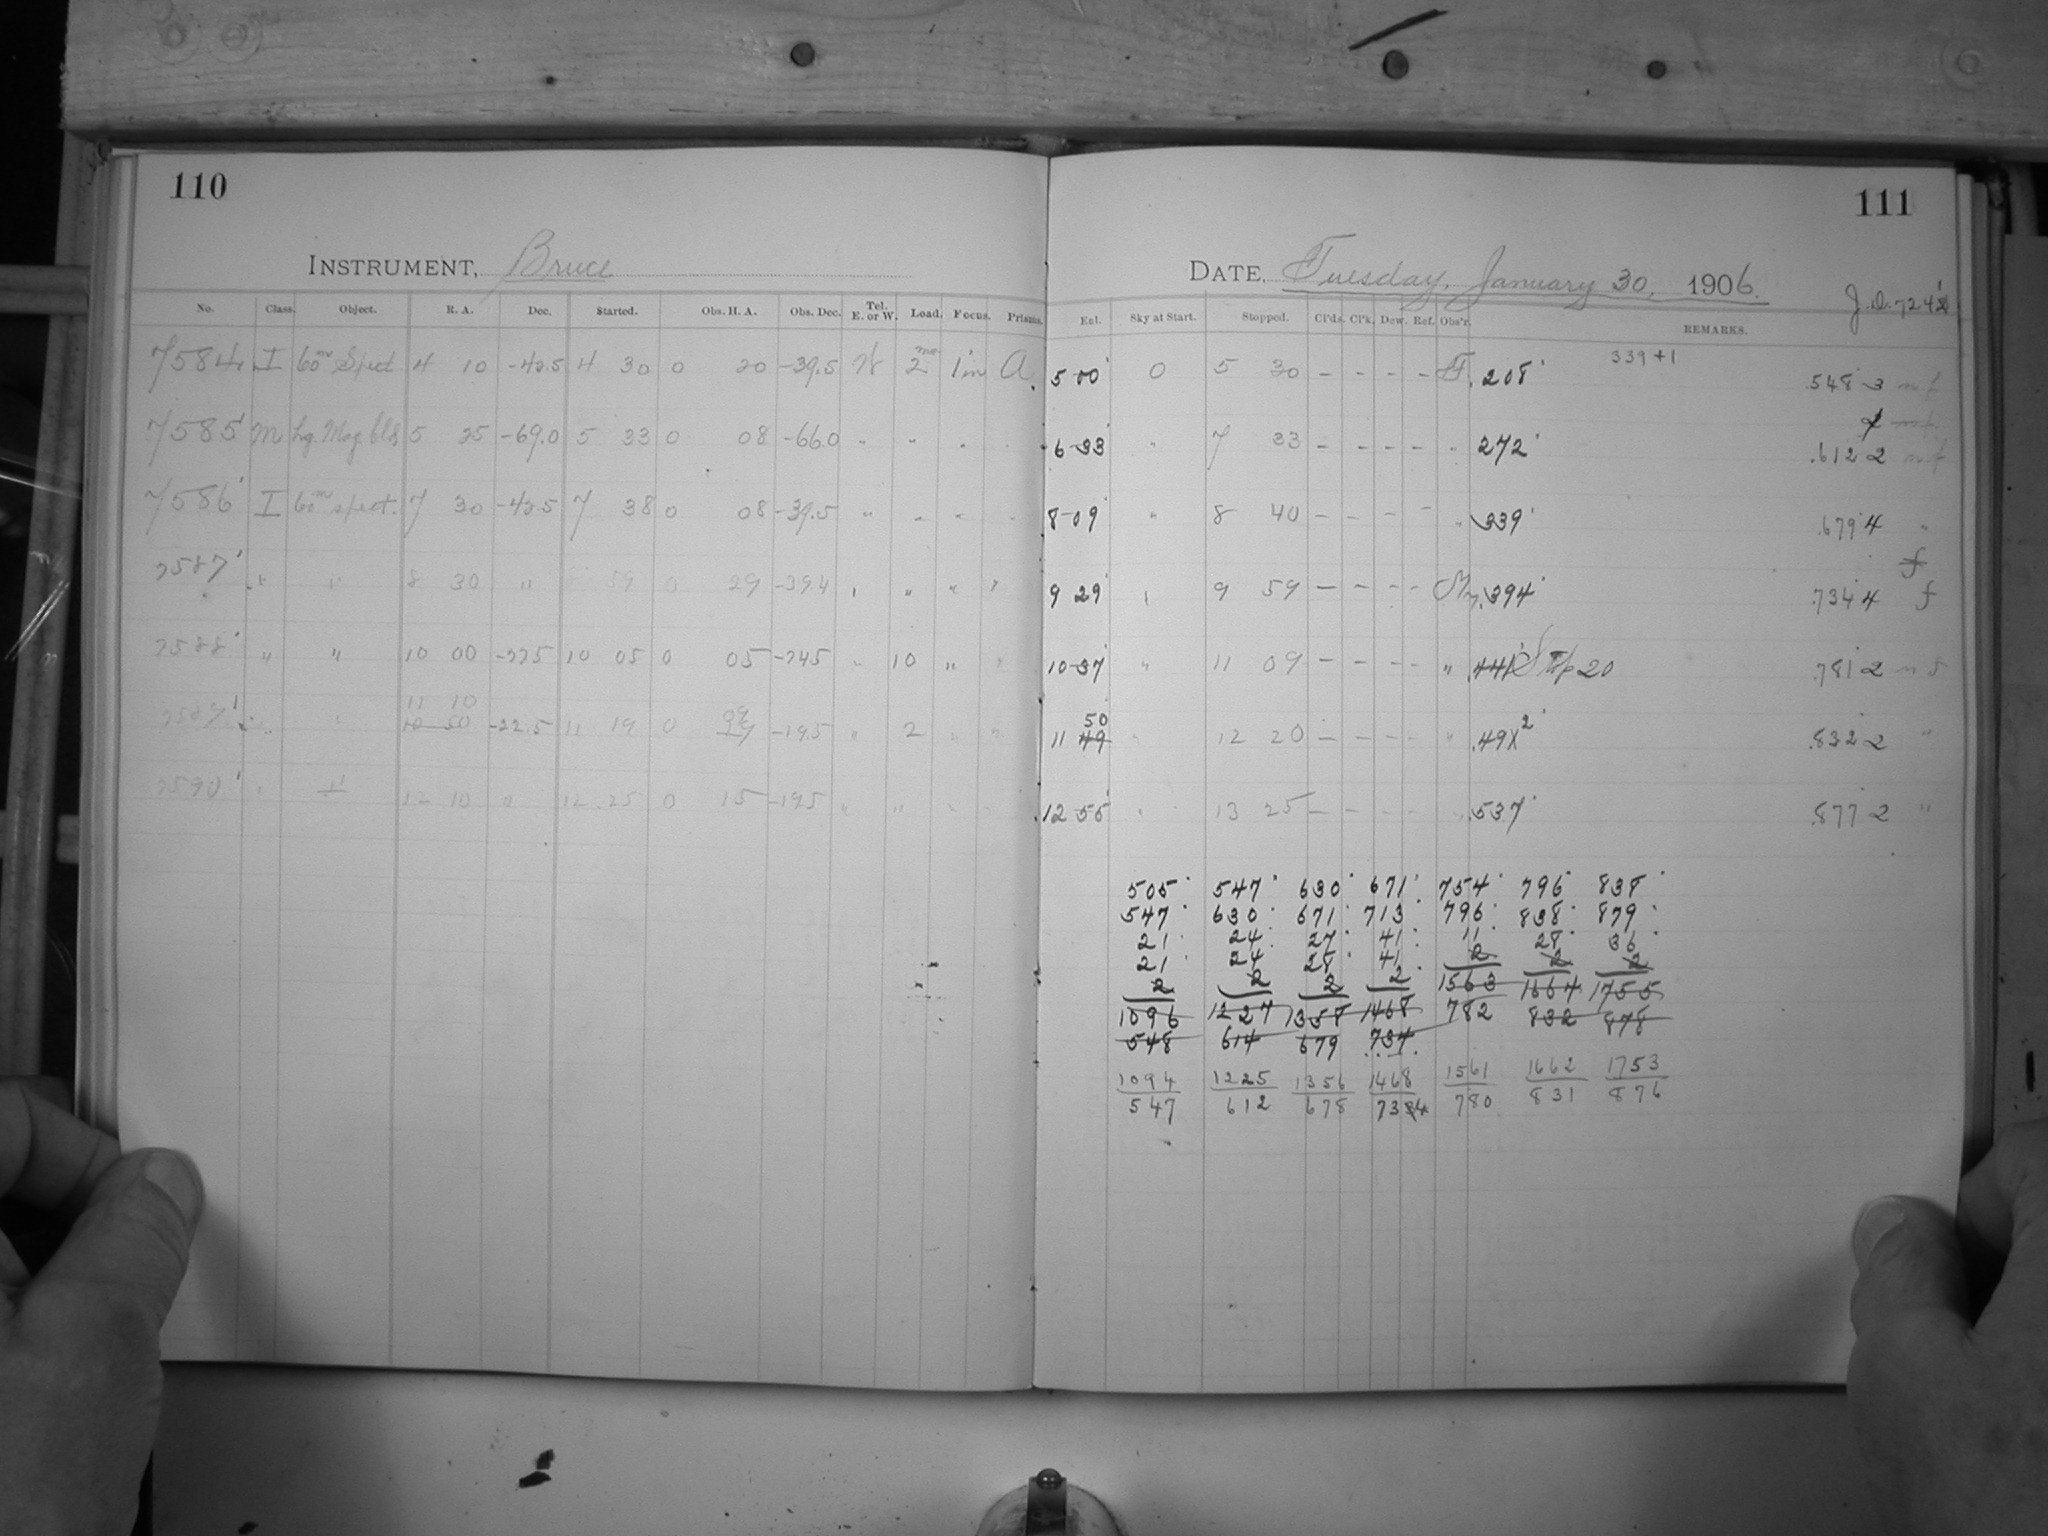 110
INSTRUMENT, Bruce
No. Class. Object. R. A. Dec. Started. Obs. H. A. Obs. Dec. Tel. E. or W. Load. Focus. Prisms.
7584 I 60m Spect 4 10 -42.5 4 30 0 20 -39.5 W 2 1in A
7585 M Lg. Mag. Cld 5 25 -69.0 5 33 0 08 -66.0 " " " "
7586 I 60m spect. 7 30 -42.5 7 38 0 08 -39.5 " " " "
7587 " " 8 30 " 59 0 29 -394 " " " "
7588 " " 10 00 10 05 0 05 -245 " 10 " "
7589 " " 11 10
10 50 -22.5 11 19 0 09 -195 " 2 " "
7590 " " 12 10 " 12 25 0 15 -195 " " " "
111
DATE, Tuesday, January 30, 1906.
J.D. 724
Eul. Sky at Start. Stopped. Cl'ds. Cl'k. Dew. Ref. Obs'r. REMARKS.
5 00 0 5 30 - - - - .208 339+1 .548 3 mf
6 33 " 7 33 - - - - " 272 .612 2 mf
8 09 " 8 40 - - - - " 339 .679 4 "
f
9 29 9 59 - - - - .394 .734 4 f
10 37 " 11 09 - - - - " .441 20 .781 2
50
11 49 " 12 20 - - - - " .49 2 .832 2 "
12 55 " 13 25 - - - - " .537 .877 2 "
505 547 630 671 754 796 838
547 630 671 713 796 838 879
21 24 27 41 11 28 36
21 24 28 41 2 2 2
2 2 2 2 1563 1664 1755
1096 1227 1358 1468 782 832 878
548 614 679 734
1094 1225 1356 1468 1561 1662 1753
547 612 678 734 780 831 876